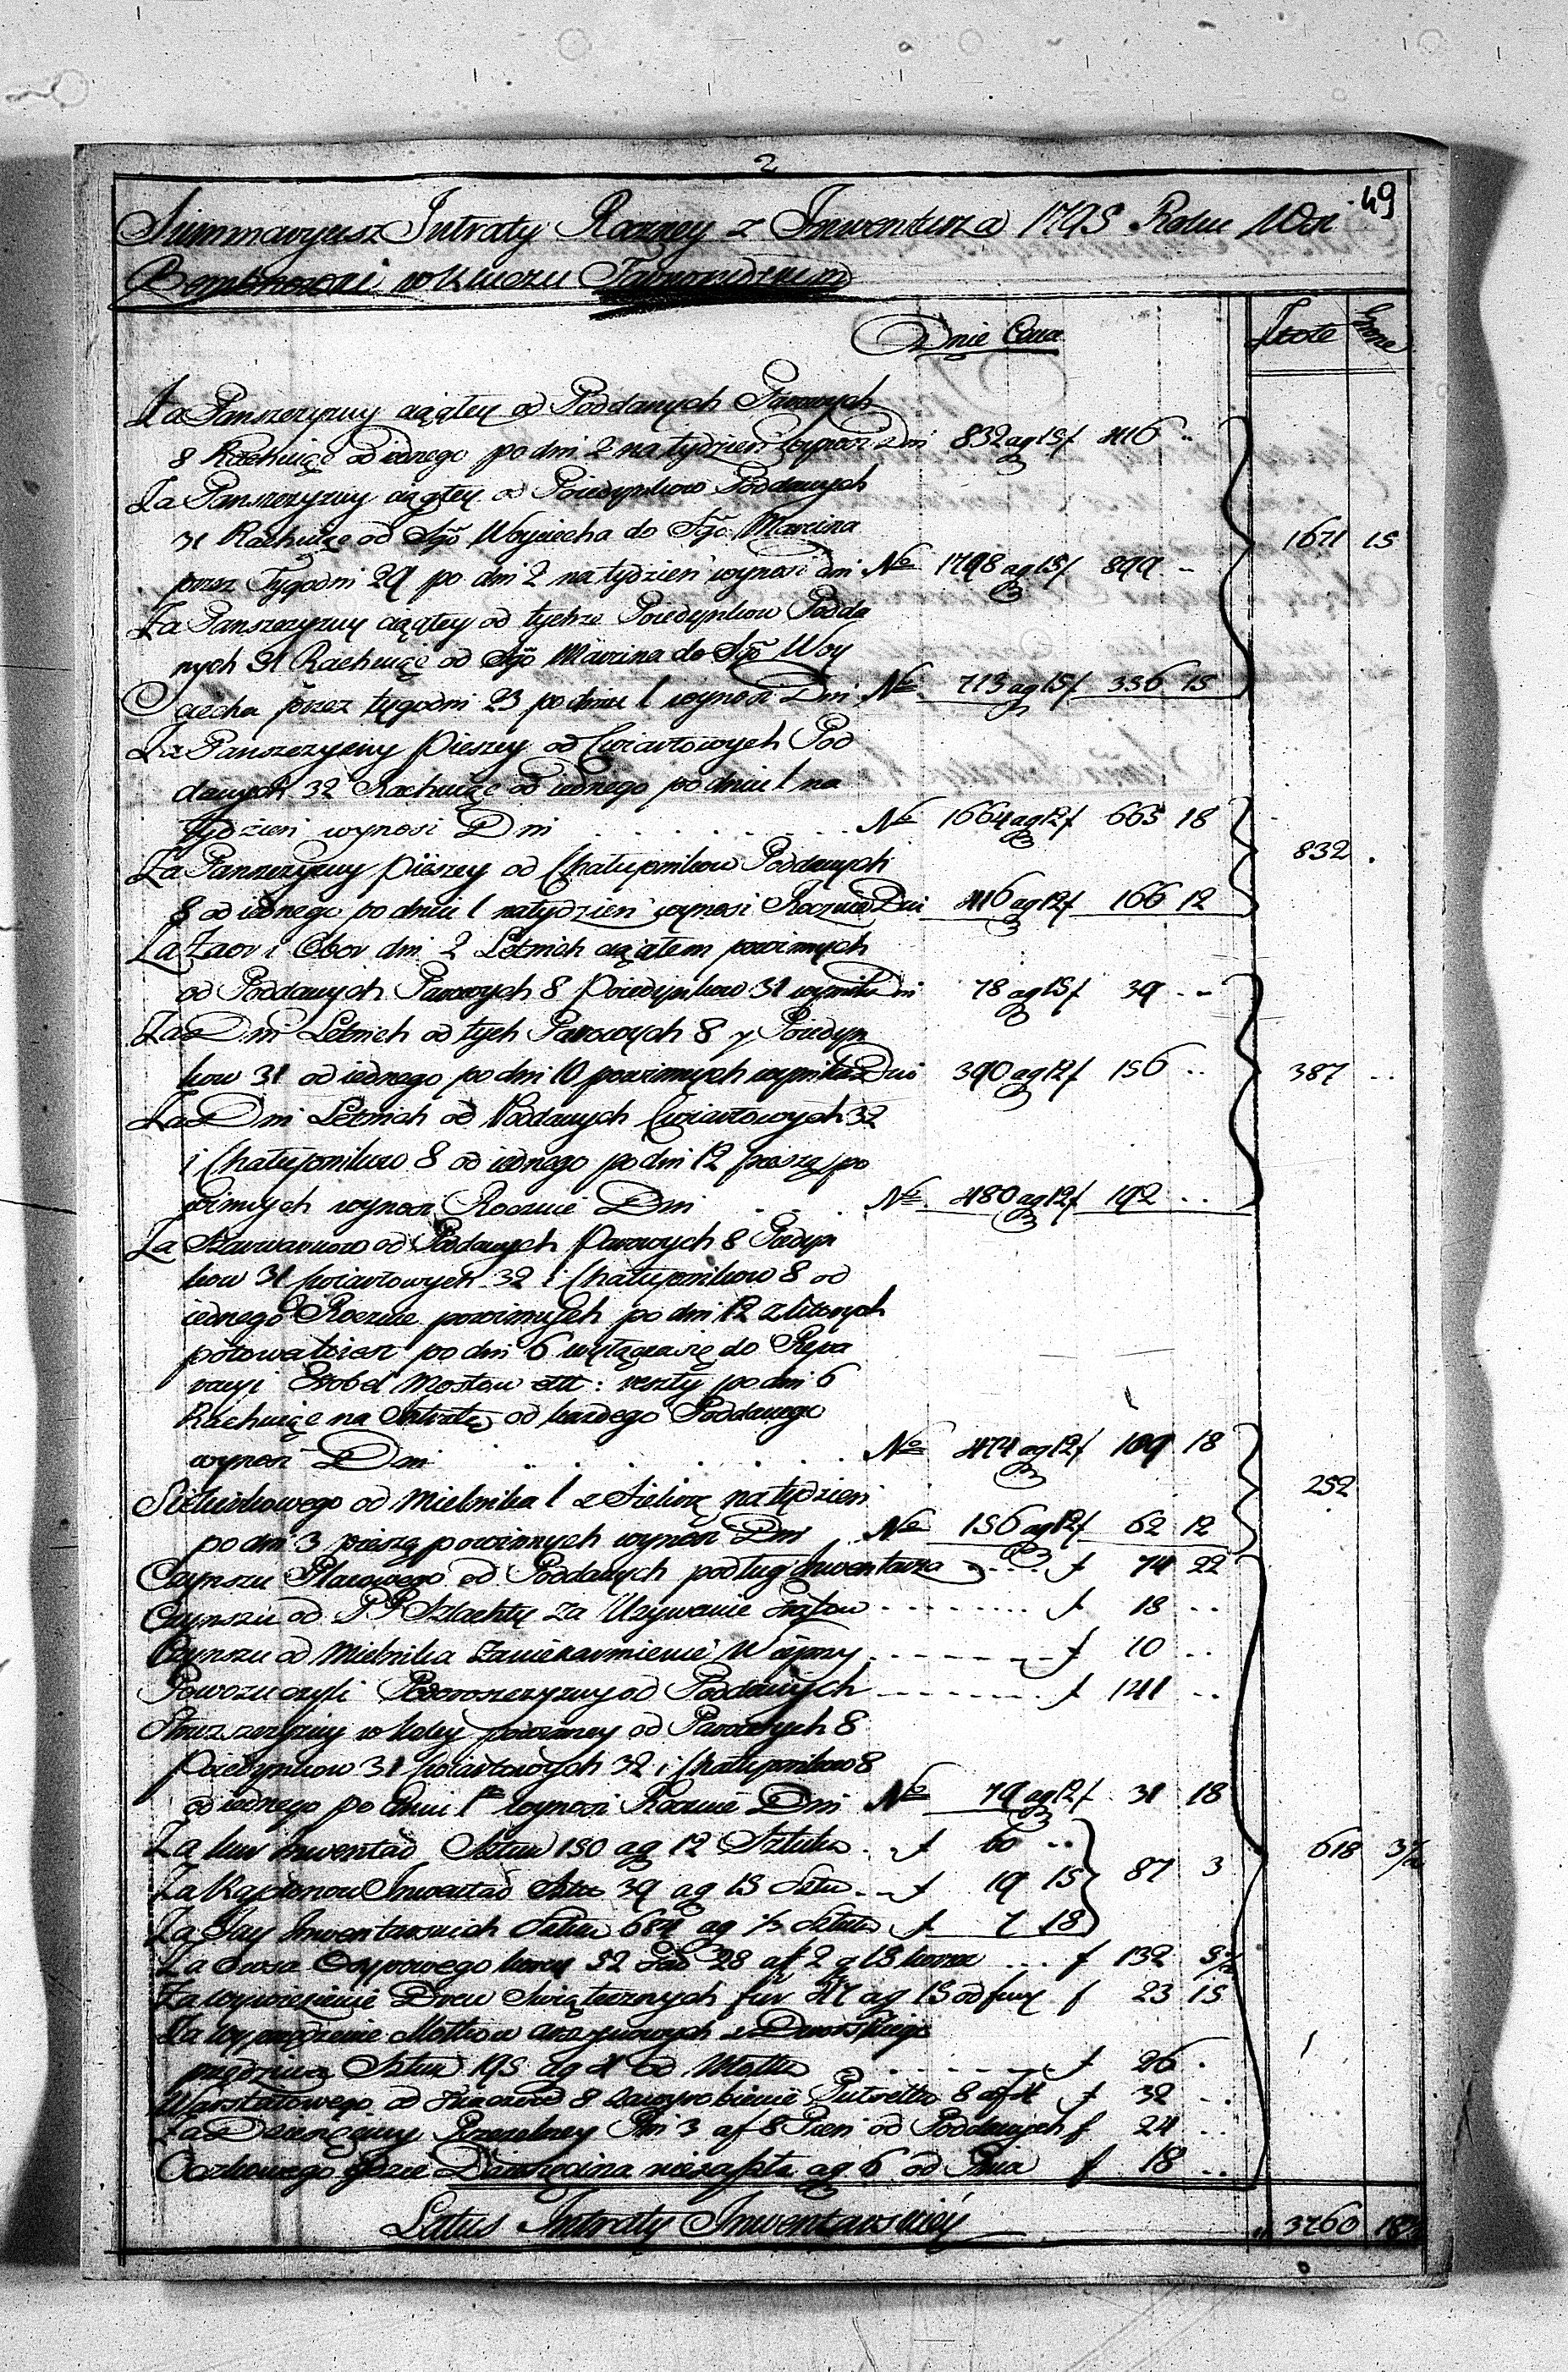 2
49
Summaryusz Intraty Roczney z Inwentarza 1795 Roku Wsi
w Kluczu Tarnowskim
Dnie Cena
Złote Grosze
Za Panszczyzny ciągłey od Poddanych Parowych
8 Rachuiąc od iednego po dni 2 na tydzień wynosi Dni 832 ag 15 f 416 ..
Za Panszczyzny ciągłey od Poiedynkow Poddanych
31 Rachuiąc od Sgo Woyciecha do Sgo Marcina
przez Tygodni 29 po dni 2 na tydzień wynosi dni No 1798 ag 15 f 899 –
1671 15
Za Panszczyzny ciągłey od tychże Poiedynkow Podda
nych 31 Rachuiąc od Sgo Marcina do Sgo Woy
ciecha przez tygodni 23 po dniu 1 wynosi Dni No 713 ag 15 f 356 15
Za Panszczyzny Pieszey od Cwiartowych Pod
danych 32 Rachuiąc od iednego po dniu 1 na
tydzień wynosi Dni . . . . . . No 1664 ag 12 f 665 18
832 .
Za Panszczyzny Pieszey od Chałupnikow Poddanych
8 od iednego po dniu 1 na tydzień wynosi Rocznie Dni 416 ag 12 f 166 12
Za Zaor i Obor dni 2 Letnich ciągłem powinnych
od Poddanych Parowych 8 Poiedynkow 31 wynika Dni 78 ag 15 f 39 . –
Za Dni Letnich od tych Parowych 8 y Poiedyn
kow 31 od iednego po dni 10 powinnych wynika Dni 390 ag 12 f 156 ..
387 ..
Za Dni Letnich od Poddanych Cwiartowych 32
i Chałupnikow 8 od iednego po dni 12 pieszą po
winnych wynosi Rocznie Dni . . . No 480 ag 12 f 192 ..
Za Szarwarkow od Poddanych Parowych 8 Poiedyn
kow 31 Cwiartowych 32 i Chałupnikow 8 od
iednego Rocznie powinnych po dni 12 z ktorych
połowa to iest po dni 6 wyłącza się do Repa
racyi Grobel Mostow ettt: reszty po dni 6
Rachuiąc na Intratę od każdego Poddanego
wynosi Dni . . . . . . No 474 ag 12 f 189 18
252
od Mielnika 1 z Siekierą na tydzień
po dni 3 pieszą powinnych wynosi Dni No 156 ag 12 f 62 12
Czynszu Placowego od Poddanych podług Inwentarza . . . f 74 22
Czynszu od PP Szlachty za Używanie . . . . . . f 18 ..
Czynszu od Mielnika za niekarmienie Wieprzy . . . . . f 10 ..
Powozu czyli Podorosczyzny od Poddanych . . . . . f 141 ..
Struższczyzny w koley powinney od Parowych 8
Poiedynkow 31 Cwiartowych 32 i Chałupnikow 8
od iednego po dniu 1 wynosi Rocznie Dni No 79 ag 12 f 31 18
Za kur Inwentar Sztuk 150 ag 12 Sztuka . . f 60 ..
87 3
618
Za Kapłonow Inwentar Sztuk 39 ag 15 Sztu . . f 19 15
Za Jay Inwentarskich Sztuk 684 ag ⅓ Sztuka f 7 18
Za Owsa Osypowego korcy 52 28 af 2 g 15 korzec . . . f 132
Za wywiezienie Drew Swiątecznych fur 47 ag 15 od fury f 23 15
Za wyprzędzenie Motkow z Dworskiego
przędziwa Sztuk 195 ag 4 od Motka . . . . f 26 .
Warsztatowego od Tkaczow 8 8 af 4 f 32 ..
Za Dziesięciny Pszczelney Pni 3 af 8 Pień od Poddanych f 24 ..
Oczkowego gdzie Dziesięcina ag 6 od Pnia f 18 ..
Latus Intraty Inwentarskiey
3760